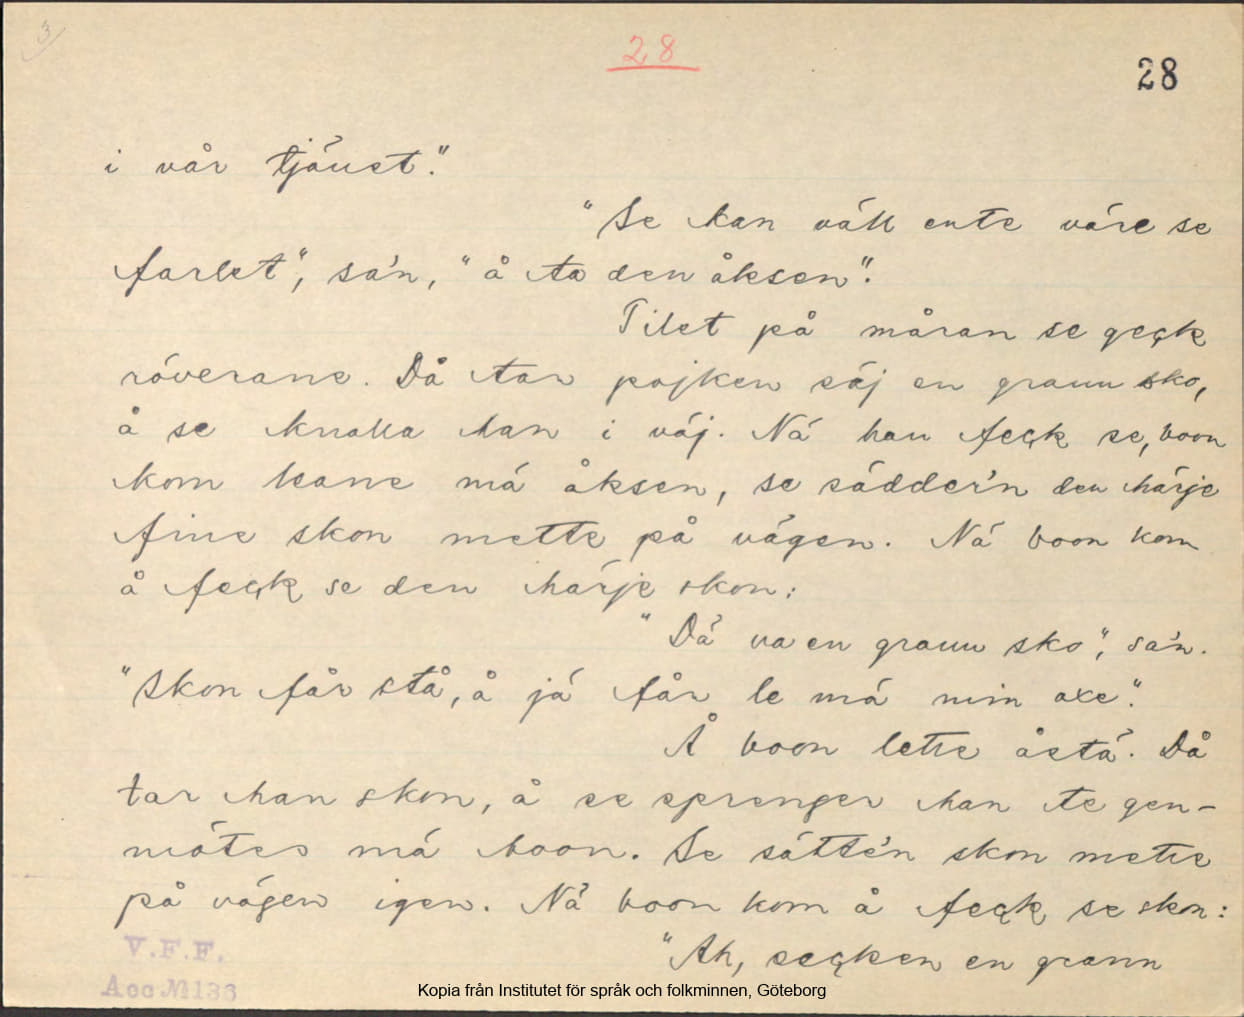 3
28
28
i vår tjäust."
"Se kan väll ente väre se
farlet", sa'n, "å ta den åksen".
Tilet på måran se geçk
röverane. Då tar pojken säj en grann sko,
å se knalla han i väj. Nä han feçk se, boon
kom leane mä åksen, se sädder'n den härje
fine skon mette på vägen. Nä boon kom
å feçk se den härje skon:
"Dä va en grann sko", sa'n.
"Skon får stå, å jä får le mä min oxe".
Å boon lette åstä. Då
tar han skon, å se sprenger han te gen-
mötes mä boon. Se sätte'n skon mette
på vägen igen. Nä boon kom å feçk se skon:
"Ah, seçken en grann
V.F.F.
Acc № 136
Kopia från Institutet för språk och folkminnen, Göteborg